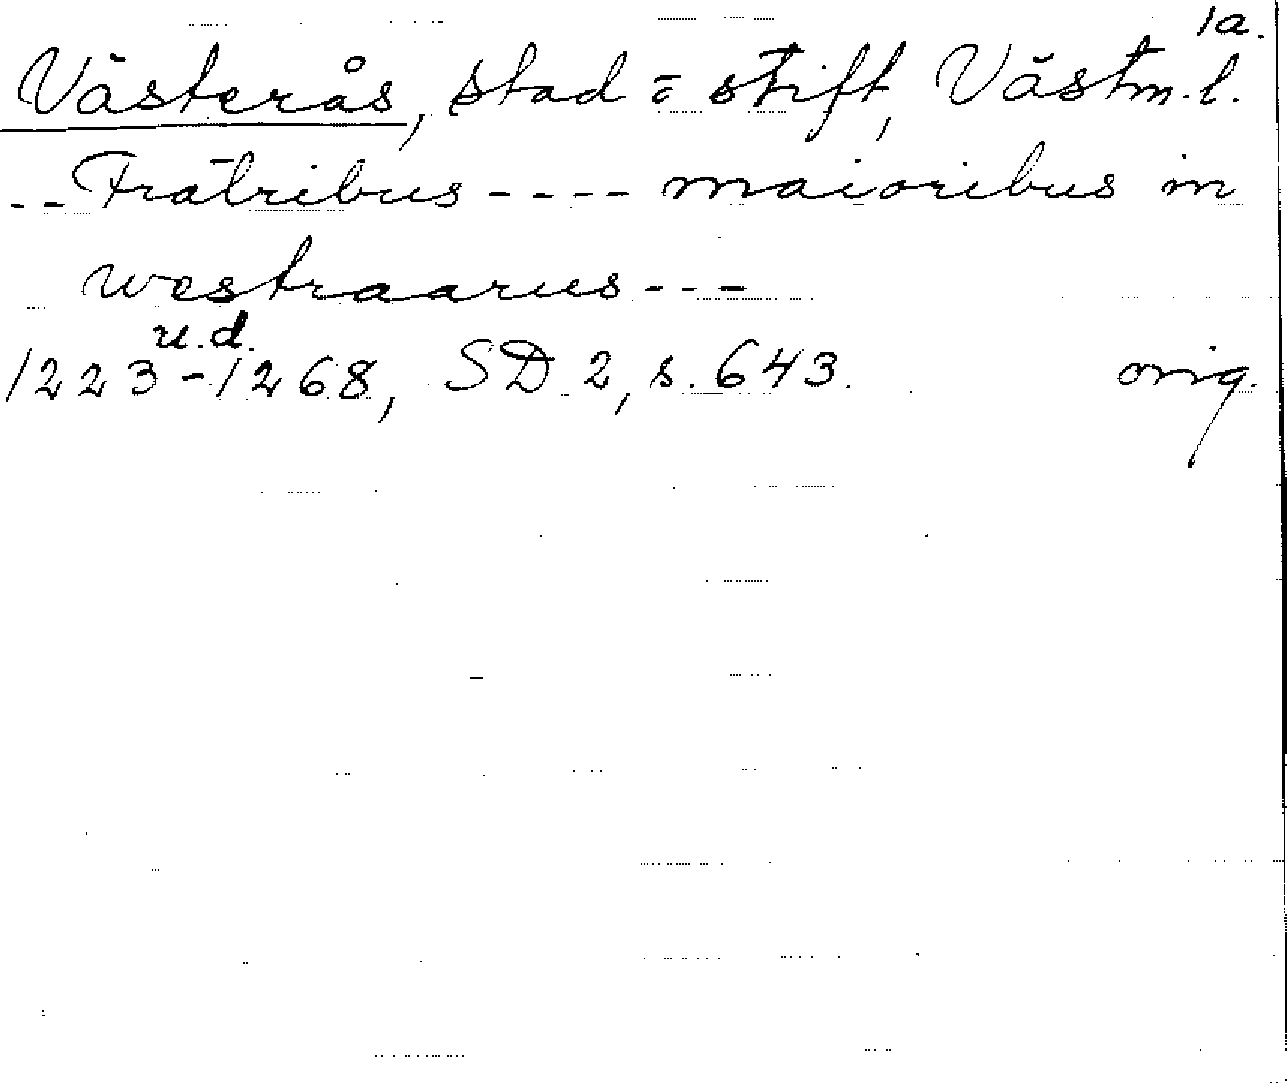 1a.
Västerås, stad o stift, Västm. l.
-- Fratribus ---- maioribus in
westraarus ---
u.d.
1223-1268, SD 2, s. 643. orig.